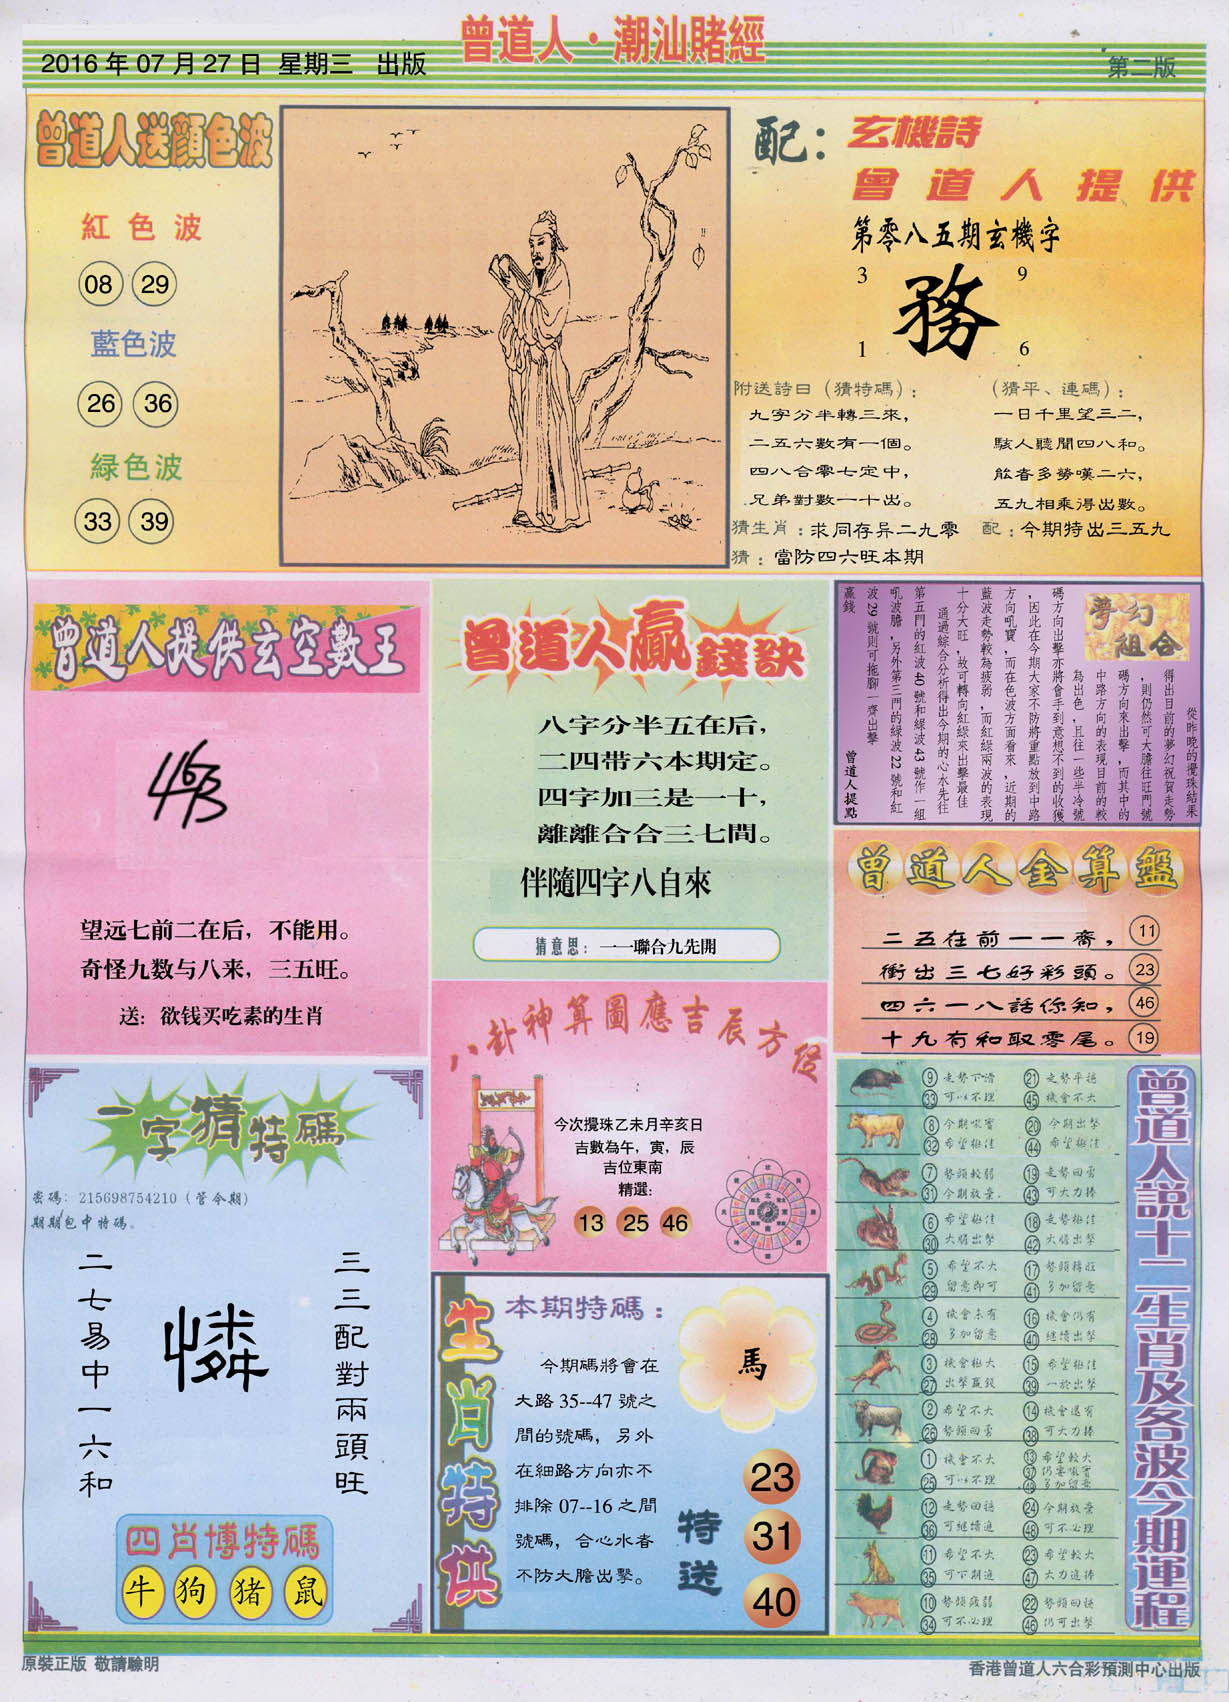 曾道人·潮汕賭經
2016年07月27日 星期三 出版
第二版
曾道人送顏色波
紅色波
08 29
藍色波
26 36
綠色波
33 39
配：玄機詩
曾道人提供
第零八五期玄機字
3 9
務
1 6
附送詩曰（猜特碼）：
九字分半轉三來，
二五六數有一個。
四八合零七定中，
兄弟對數一十出。
（猜平、連碼）：
一日千里望三二，
駭人聽聞四八和。
能者多勞嘆二六，
五九相乘得出數。
猜生肖：求同存异二九零
配：今期特出三五九
猜：當防四六旺本期
曾道人提供玄空數王
463
望远七前二在后，不能用。
奇怪九数与八来，三五旺。
送：欲钱买吃素的生肖
曾道人贏錢訣
八字分半五在后，
二四带六本期定。
四字加三是一十，
離離合合三七間。
伴隨四字八自來
猜意思：一一聯合九先開
夢幻組合
從昨晚的攪珠結果
得出目前的夢幻祝賀走勢
，則仍然可大膽往旺門號
碼方向來出擊，而其中的
中路方向的表現目前的較
為出色，且往一些半冷號
碼方向出擊亦將會手到意想不到的收獲
，因此在今期大家不防將重點放到中路
方向吼寶，而在色波方面看來，近期的
藍波走勢較為疲弱，而紅綠兩波的表現
十分大旺，故可轉向紅綠來出擊最佳
通過綜合分析得出今期的心水先往
第五門的紅波40號和綠波43號作一組
吼波膽，另外第三門的綠波22號和紅
波29號則可拖腳一齊出擊
贏錢
曾道人提點
曾道人金算盤
二五在前一一齊， 11
衝出三七好彩頭。 23
四六一八話你知， 46
十九有和取零尾。 19
八卦神算圖應吉辰方位
今次攪珠乙未月辛亥日
吉數為午，寅，辰
吉位東南
精選:
13 25 46
一字猜特碼
密碼：215698754210（管今期）
期期包中特碼。
三三配對兩頭旺
憐
二七易中一六和
四肖博特碼
牛 狗 猪 鼠
生肖特供
本期特碼：
今期碼將會在
大路35--47號之
間的號碼，另外
在細路方向亦不
排除07--16之間
號碼，合心水者
不防大膽出擊。
馬
特送
23
31
40
曾道人說十二生肖及各波今期運程
9 走勢下滑 21 走勢平穩
33 可以不理 45 機會不大
8 今期吼寶 20 今期出擊
32 希望極佳 44 希望極佳
7 勢頭較弱 19 走勢回勇
31 今期放棄 43 可大力捧
6 希望極佳 18 走勢極佳
30 大膽出擊 42 大膽出擊
5 希望不大 17 勢頭轉旺
29 留意即可 41 多加留意
4 機會未有 16 機會仍有
28 多加留意 40 繼續出擊
3 機會極大 15 希望極佳
27 出擊贏錢 39 一於出擊
2 希望不大 14 機會還有
26 勢頭回勇 38 可大力捧
1 機會不大 13 希望較大
25 可以不理 37 仍要吼寶
49 多加留意
12 走勢回穩 24 今期放棄
36 可繼續追 48 可不必理
11 希望不大 23 希望較大
35 可下期追 47 大力追捧
10 勢頭疲弱 22 勢頭回穩
34 可不必理 46 仍可出擊
原裝正版 敬請驗明
香港曾道人六合彩預測中心出版